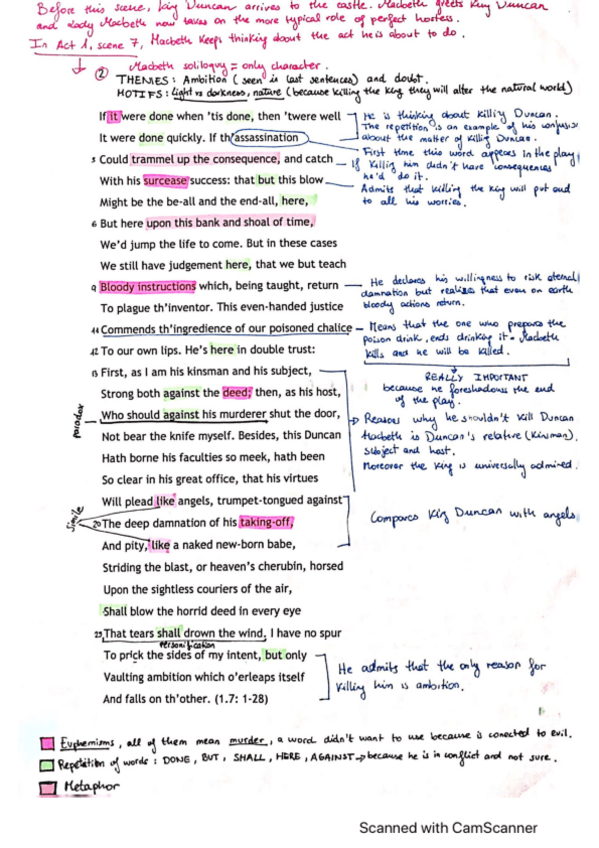 Before this scene, king Duncan arrives to the castle. Macbeth greets King Duncan
and Lady Macbeth now takes on the more typical role of perfect hostess.
In Act 1, scene 7, Macbeth keeps thinking about the act he is about to do.
② Macbeth soliloquy = only character.
THEMES: Ambition (seen is last sentences) and doubt.
MOTIFS: light vs darkness, nature (because killing the king they will alter the natural world)
If it were done when 'tis done, then 'twere well
He is thinking about killing Duncan.
The repetition is an example of his confusion
about the matter of killing Duncan.
It were done quickly. If th'assassination
First time this word appears in the play
5 Could trammel up the consequence, and catch
If killing him didn't have consequences
he'd do it.
With his surcease success: that but this blow
Admits that killing the king will put end
to all his worries.
Might be the be-all and the end-all, here,
6 But here upon this bank and shoal of time,
We'd jump the life to come. But in these cases
We still have judgement here, that we but teach
9 Bloody instructions which, being taught, return
He declares his willingness to risk eternal
damnation but realizes that even on earth
bloody actions return.
To plague th'inventor. This even-handed justice
11 Commends th'ingredience of our poisoned chalice
Means that the one who prepares the
poison drink, ends drinking it - Macbeth
kills and he will be killed.
12 To our own lips. He's here in double trust:
REALLY IMPORTANT
because he foreshadows the end
of the play.
13 First, as I am his kinsman and his subject,
Strong both against the deed; then, as his host,
paradox
Who should against his murderer shut the door,
Reasons why he shouldn't kill Duncan
Macbeth is Duncan's relative (kinsman),
subject and host.
Moreover the king is universally admired.
Not bear the knife myself. Besides, this Duncan
Hath borne his faculties so meek, hath been
So clear in his great office, that his virtues
Will plead like angels, trumpet-tongued against
simile
20 The deep damnation of his taking-off,
Compares King Duncan with angels
And pity, like a naked new-born babe,
Striding the blast, or heaven's cherubin, horsed
Upon the sightless couriers of the air,
Shall blow the horrid deed in every eye
25 That tears shall drown the wind, I have no spur
Personification
To prick the sides of my intent, but only
He admits that the only reason for
killing him is ambition.
Vaulting ambition which o'erleaps itself
And falls on th'other. (1.7: 1-28)
Euphemisms, all of them mean murder, a word didn't want to use because is conected to evil.
Repetition of words: DONE, BUT, SHALL, HERE, AGAINST → because he is in conflict and not sure.
Metaphor
Scanned with CamScanner